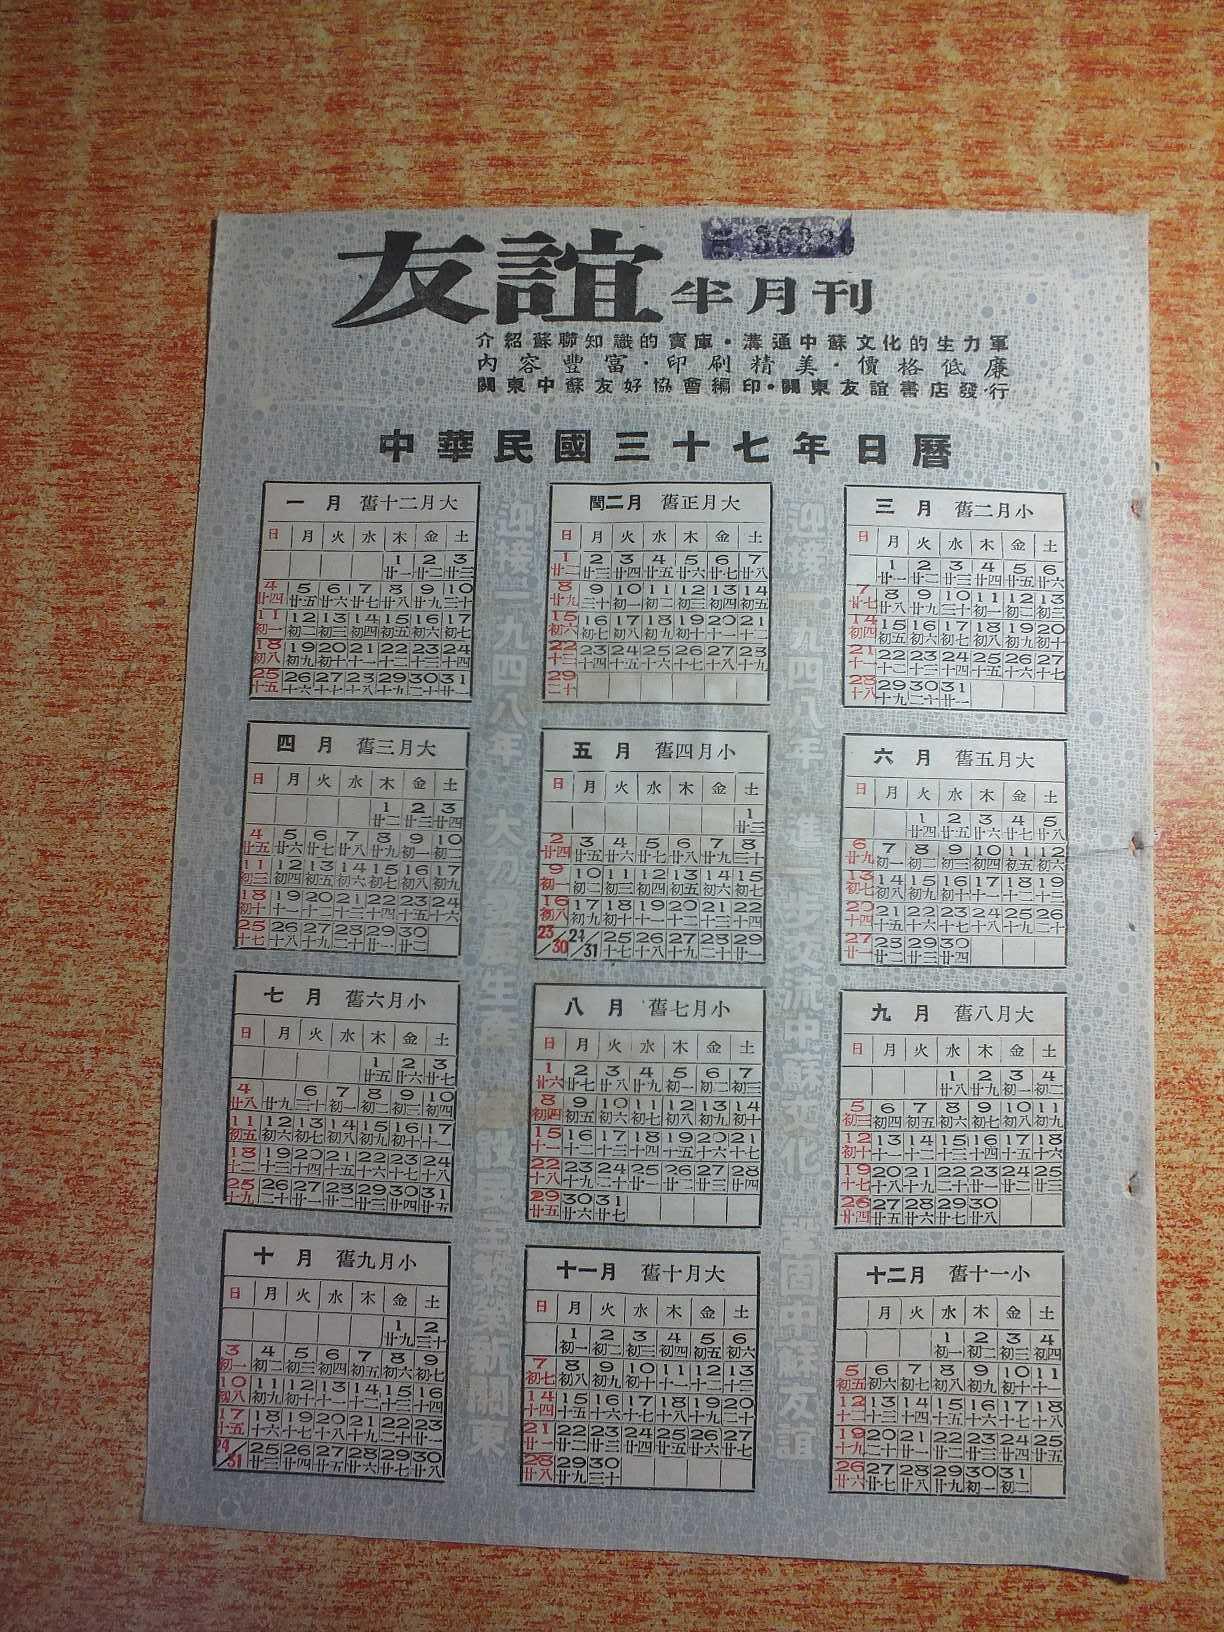 友誼 半月刊
介紹蘇聯知識的寶庫·溝通中蘇文化的生力軍
內容豐富·印刷精美·價格低廉
關東中蘇友好協會編印·關東友誼書店發行
中華民國三十七年日曆
迎接一九四八年
迎接一九四八年 進一步交流中蘇文化 鞏固中蘇友誼
一月 舊十二月大
日 月 火 水 木 金 土
1 2 3
廿一 廿二 廿三
4 5 6 7 8 9 10
廿四 廿五 廿六 廿七 廿八 廿九 三十
11 12 13 14 15 16 17
初一 初二 初三 初四 初五 初六 初七
18 19 20 21 22 23 24
初八 初九 初十 十一 十二 十三 十四
25 26 27 28 29 30 31
十五 十六 十七 十八 十九 二十 廿一
閏二月 舊正月大
日 月 火 水 木 金 土
1 2 3 4 5 6 7
廿二 廿三 廿四 廿五 廿六 廿七 廿八
8 9 10 11 12 13 14
廿九 三十 初一 初二 初三 初四 初五
15 16 17 18 19 20 21
初六 初七 初八 初九 初十 十一 十二
22 23 24 25 26 27 28
十三 十四 十五 十六 十七 十八 十九
29
二十
三月 舊二月小
日 月 火 水 木 金 土
1 2 3 4 5 6
廿一 廿二 廿三 廿四 廿五 廿六
7 8 9 10 11 12 13
廿七 廿八 廿九 三十 初一 初二 初三
14 15 16 17 18 19 20
初四 初五 初六 初七 初八 初九 初十
21 22 23 24 25 26 27
十一 十二 十三 十四 十五 十六 十七
28 29 30 31
十八 十九 二十 廿一
四月 舊三月大
日 月 火 水 木 金 土
1 2 3
廿二 廿三 廿四
4 5 6 7 8 9 10
廿五 廿六 廿七 廿八 廿九 初一 初二
11 12 13 14 15 16 17
初三 初四 初五 初六 初七 初八 初九
18 19 20 21 22 23 24
初十 十一 十二 十三 十四 十五 十六
25 26 27 28 29 30
十七 十八 十九 二十 廿一 廿二
五月 舊四月小
日 月 火 水 木 金 土
1
廿三
2 3 4 5 6 7 8
廿四 廿五 廿六 廿七 廿八 廿九 三十
9 10 11 12 13 14 15
初一 初二 初三 初四 初五 初六 初七
16 17 18 19 20 21 22
初八 初九 初十 十一 十二 十三 十四
23/30 24/31 25 26 27 28 29
十七 十八 十九 二十 廿一
六月 舊五月大
日 月 火 水 木 金 土
1 2 3 4 5
廿四 廿五 廿六 廿七 廿八
6 7 8 9 10 11 12
廿九 初一 初二 初三 初四 初五 初六
13 14 15 16 17 18 19
初七 初八 初九 初十 十一 十二 十三
20 21 22 23 24 25 26
十四 十五 十六 十七 十八 十九 二十
27 28 29 30
廿一 廿二 廿三 廿四
七月 舊六月小
日 月 火 水 木 金 土
1 2 3
廿五 廿六 廿七
4 6 7 8 9 10
廿八 廿九 三十 初一 初二 初三 初四
11 12 13 14 15 16 17
初五 初六 初七 初八 初九 初十 十一
18 19 20 21 22 23 24
十二 十三 十四 十五 十六 十七 十八
25 26 27 28 29 30 31
十九 二十 廿一 廿二 廿三 廿四 廿五
八月 舊七月小
日 月 火 水 木 金 土
1 2 3 4 5 6 7
廿六 廿七 廿八 廿九 初一 初二 初三
8 9 10 11 12 13 14
初四 初五 初六 初七 初八 初九 初十
15 16 17 18 19 20 21
十一 十二 十三 十四 十五 十六 十七
22 23 24 25 26 27 28
十八 十九 二十 廿一 廿二 廿三 廿四
29 30 31
廿五 廿六 廿七
九月 舊八月大
日 月 火 水 木 金 土
1 2 3 4
廿八 廿九 初一 初二
5 6 7 8 9 10 11
初三 初四 初五 初六 初七 初八 初九
12 13 14 15 16 17 18
初十 十一 十二 十三 十四 十五 十六
19 20 21 22 23 24 25
十七 十八 十九 二十 廿一 廿二 廿三
26 27 28 29 30
廿四 廿五 廿六 廿七 廿八
十月 舊九月小
日 月 火 水 木 金 土
1 2
廿九 三十
3 4 5 6 7 8 9
初一 初二 初三 初四 初五 初六 初七
10 11 12 13 14 15 16
初八 初九 初十 十一 十二 十三 十四
17 18 19 20 21 22 23
十五 十六 十七 十八 十九 二十 廿一
24/31 25 26 27 28 29 30
廿三 廿四 廿五 廿六 廿七 廿八
十一月 舊十月大
日 月 火 水 木 金 土
1 2 3 4 5 6
初一 初二 初三 初四 初五 初六
7 8 9 10 11 12 13
初七 初八 初九 初十 十一 十二 十三
14 15 16 17 18 19 20
十四 十五 十六 十七 十八 十九 二十
21 22 23 24 25 26 27
廿一 廿二 廿三 廿四 廿五 廿六 廿七
28 29 30
廿八 廿九 三十
十二月 舊十一小
月 火 水 木 金 土
1 2 3 4
初一 初二 初三 初四
5 6 7 8 9 10 11
初五 初六 初七 初八 初九 初十 十一
12 13 14 15 16 17 18
十二 十三 十四 十五 十六 十七 十八
19 20 21 22 23 24 25
十九 二十 廿一 廿二 廿三 廿四 廿五
26 27 28 29 30 31
廿六 廿七 廿八 廿九 初一 初二